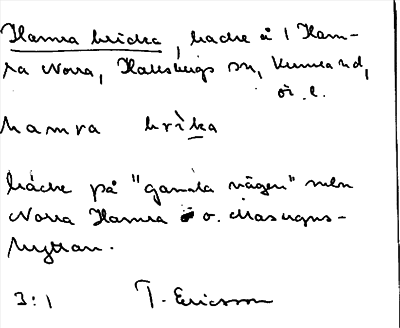 Hamra bricka, backe å 1 Ham-
ra Norra, Hallsbergs sn, Kumla hd,
ör. l.
hamra brìka
backe på "gamla vägen" mellan
Norra Hamra o. Masugns-
hyttan.
3:1 T. Ericsson